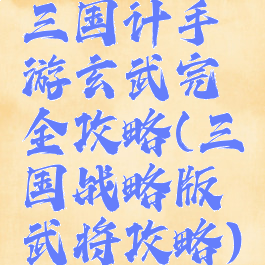 三国计手
游玄武完
全攻略(三
国战略版
武将攻略)